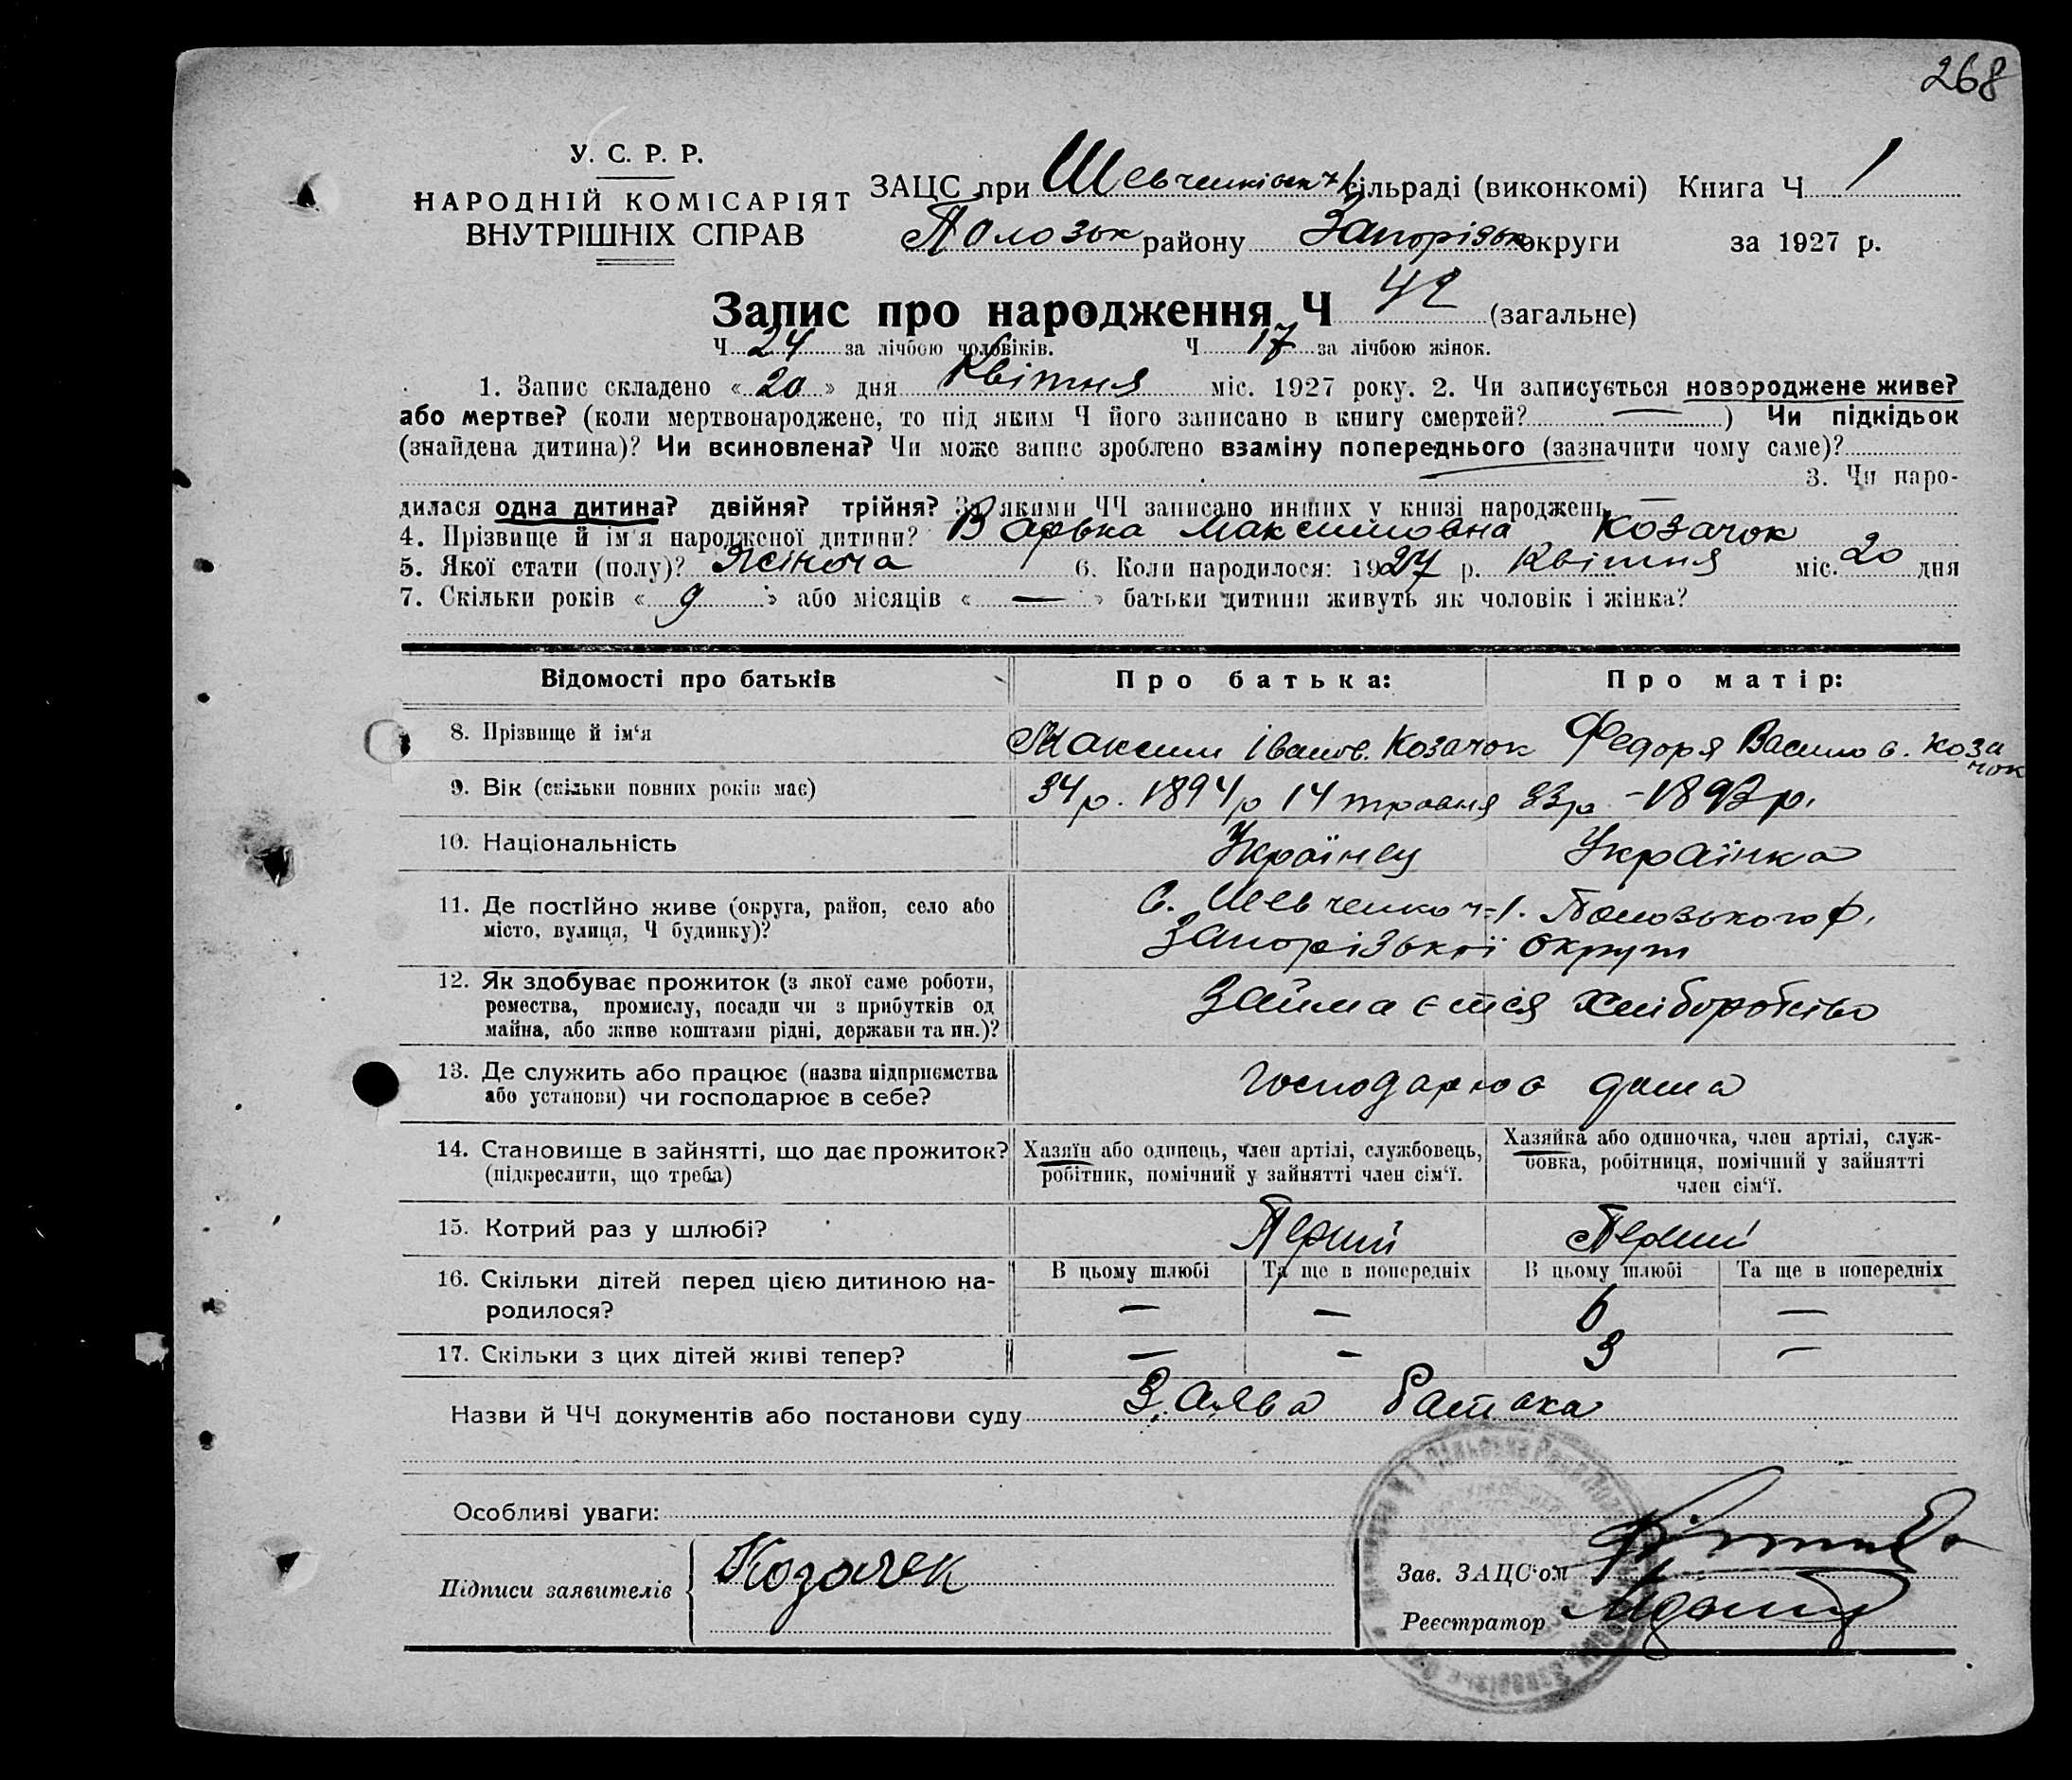 268
У. С. Р. Р.
НАРОДНІЙ КОМІСАРІЯТ
ВНУТРІШНІХ СПРАВ
ЗАЦС при Шевченківськ 1 сільраді (виконкомі) Книга Ч 1
Полозьк району Запорізьк округи за 1927 р.
Запис про народження Ч 42 (загальне)
Ч 24 за лічбою чоловіків. Ч 17 за лічбою жінок.
1. Запис складено «20» дня Квітня міс. 1927 року. 2. Чи записується новороджене живе?
або мертве? (коли мертвонароджене, то під яким Ч його записано в книгу смертей? —) Чи підкідьок
(знайдена дитина)? Чи всиновлена? Чи може запис зроблено взаміну попереднього (зазначити чому саме)?
— 3. Чи наро-
дилася одна дитина? двійня? трійня? За якими ЧЧ записано инших у книзі народжень —
4. Прізвище й ім'я народженої дитини? Варька Максимовна Козачок
5. Якої стати (полу)? Жіноча 6. Коли народилося: 1927 р. Квітня міс. 20 дня
7. Скільки років «9» або місяців «—» батьки дитини живуть як чоловік і жінка?
Відомості про батьків Про батька: Про матір:
8. Прізвище й ім‘я Максим Іванов. Козачок Федоря Васильов. Козачок
9. Вік (скільки повних років має) 34 р. 1894 р 14 травня 33 р - 1893 р.
10. Національність Українец Українка
11. Де постійно живе (округа, район, село або
місто, вулиця, Ч будинку)?
С. Шевченко ч-1. Полозького р.
Запорізької округи
12. Як здобуває прожиток (з якої саме роботи,
ремества, промислу, посади чи з прибутків од
майна, або живе коштами рідні, держави та ин.)?
Займаєтся хліборобство
13. Де служить або працює (назва підприємства
або установи) чи господарює в себе?
господарює дома
14. Становище в зайнятті, що дає прожиток?
(підкреслити, що треба)
Хазяїн або одинець, член артілі, службовець,
робітник, помічний у зайнятті член сім‘ї.
Хазяйка або одиночка, член артілі, служ-
бовка, робітниця, помічний у зайнятті
член сім‘ї.
15. Котрий раз у шлюбі? Перший Перший
16. Скільки дітей перед цією дитиною на-
родилося?
В цьому шлюбі Та ще в попередніх В цьому шлюбі Та ще в попередніх
— — 6 —
17. Скільки з цих дітей живі тепер? — - 3 —
Назви й ЧЧ документів або постанови суду Заява батька
Особливі уваги:
Підписи заявителів Козачек
Зав. ЗАЦС‘ом
Реєстратор